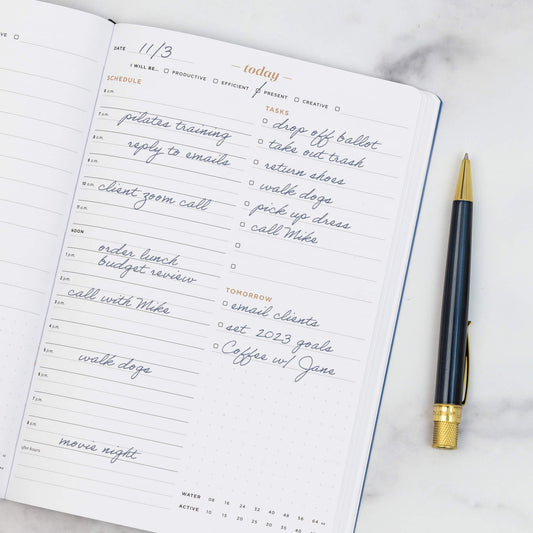 today
DATE 11/3
I WILL BE... PRODUCTIVE EFFICIENT PRESENT CREATIVE
SCHEDULE
6 a.m.
7 a.m. pilates training
8 a.m. reply to emails
9 a.m.
10 a.m. client zoom call
11 a.m.
NOON order lunch
1 p.m. budget review
2 p.m.
3 p.m. call with Mike
4 p.m.
5 p.m. walk dogs
6 p.m.
7 p.m.
8 p.m.
after hours movie night
TASKS
drop off ballot
take out trash
return shoes
walk dogs
pick up dress
call Mike
TOMORROW
email clients
set 2023 goals
Coffee w/ Jane
WATER 08 16 24 32 40 48 56 64 oz
ACTIVE 10 15 20 25 30 35 40